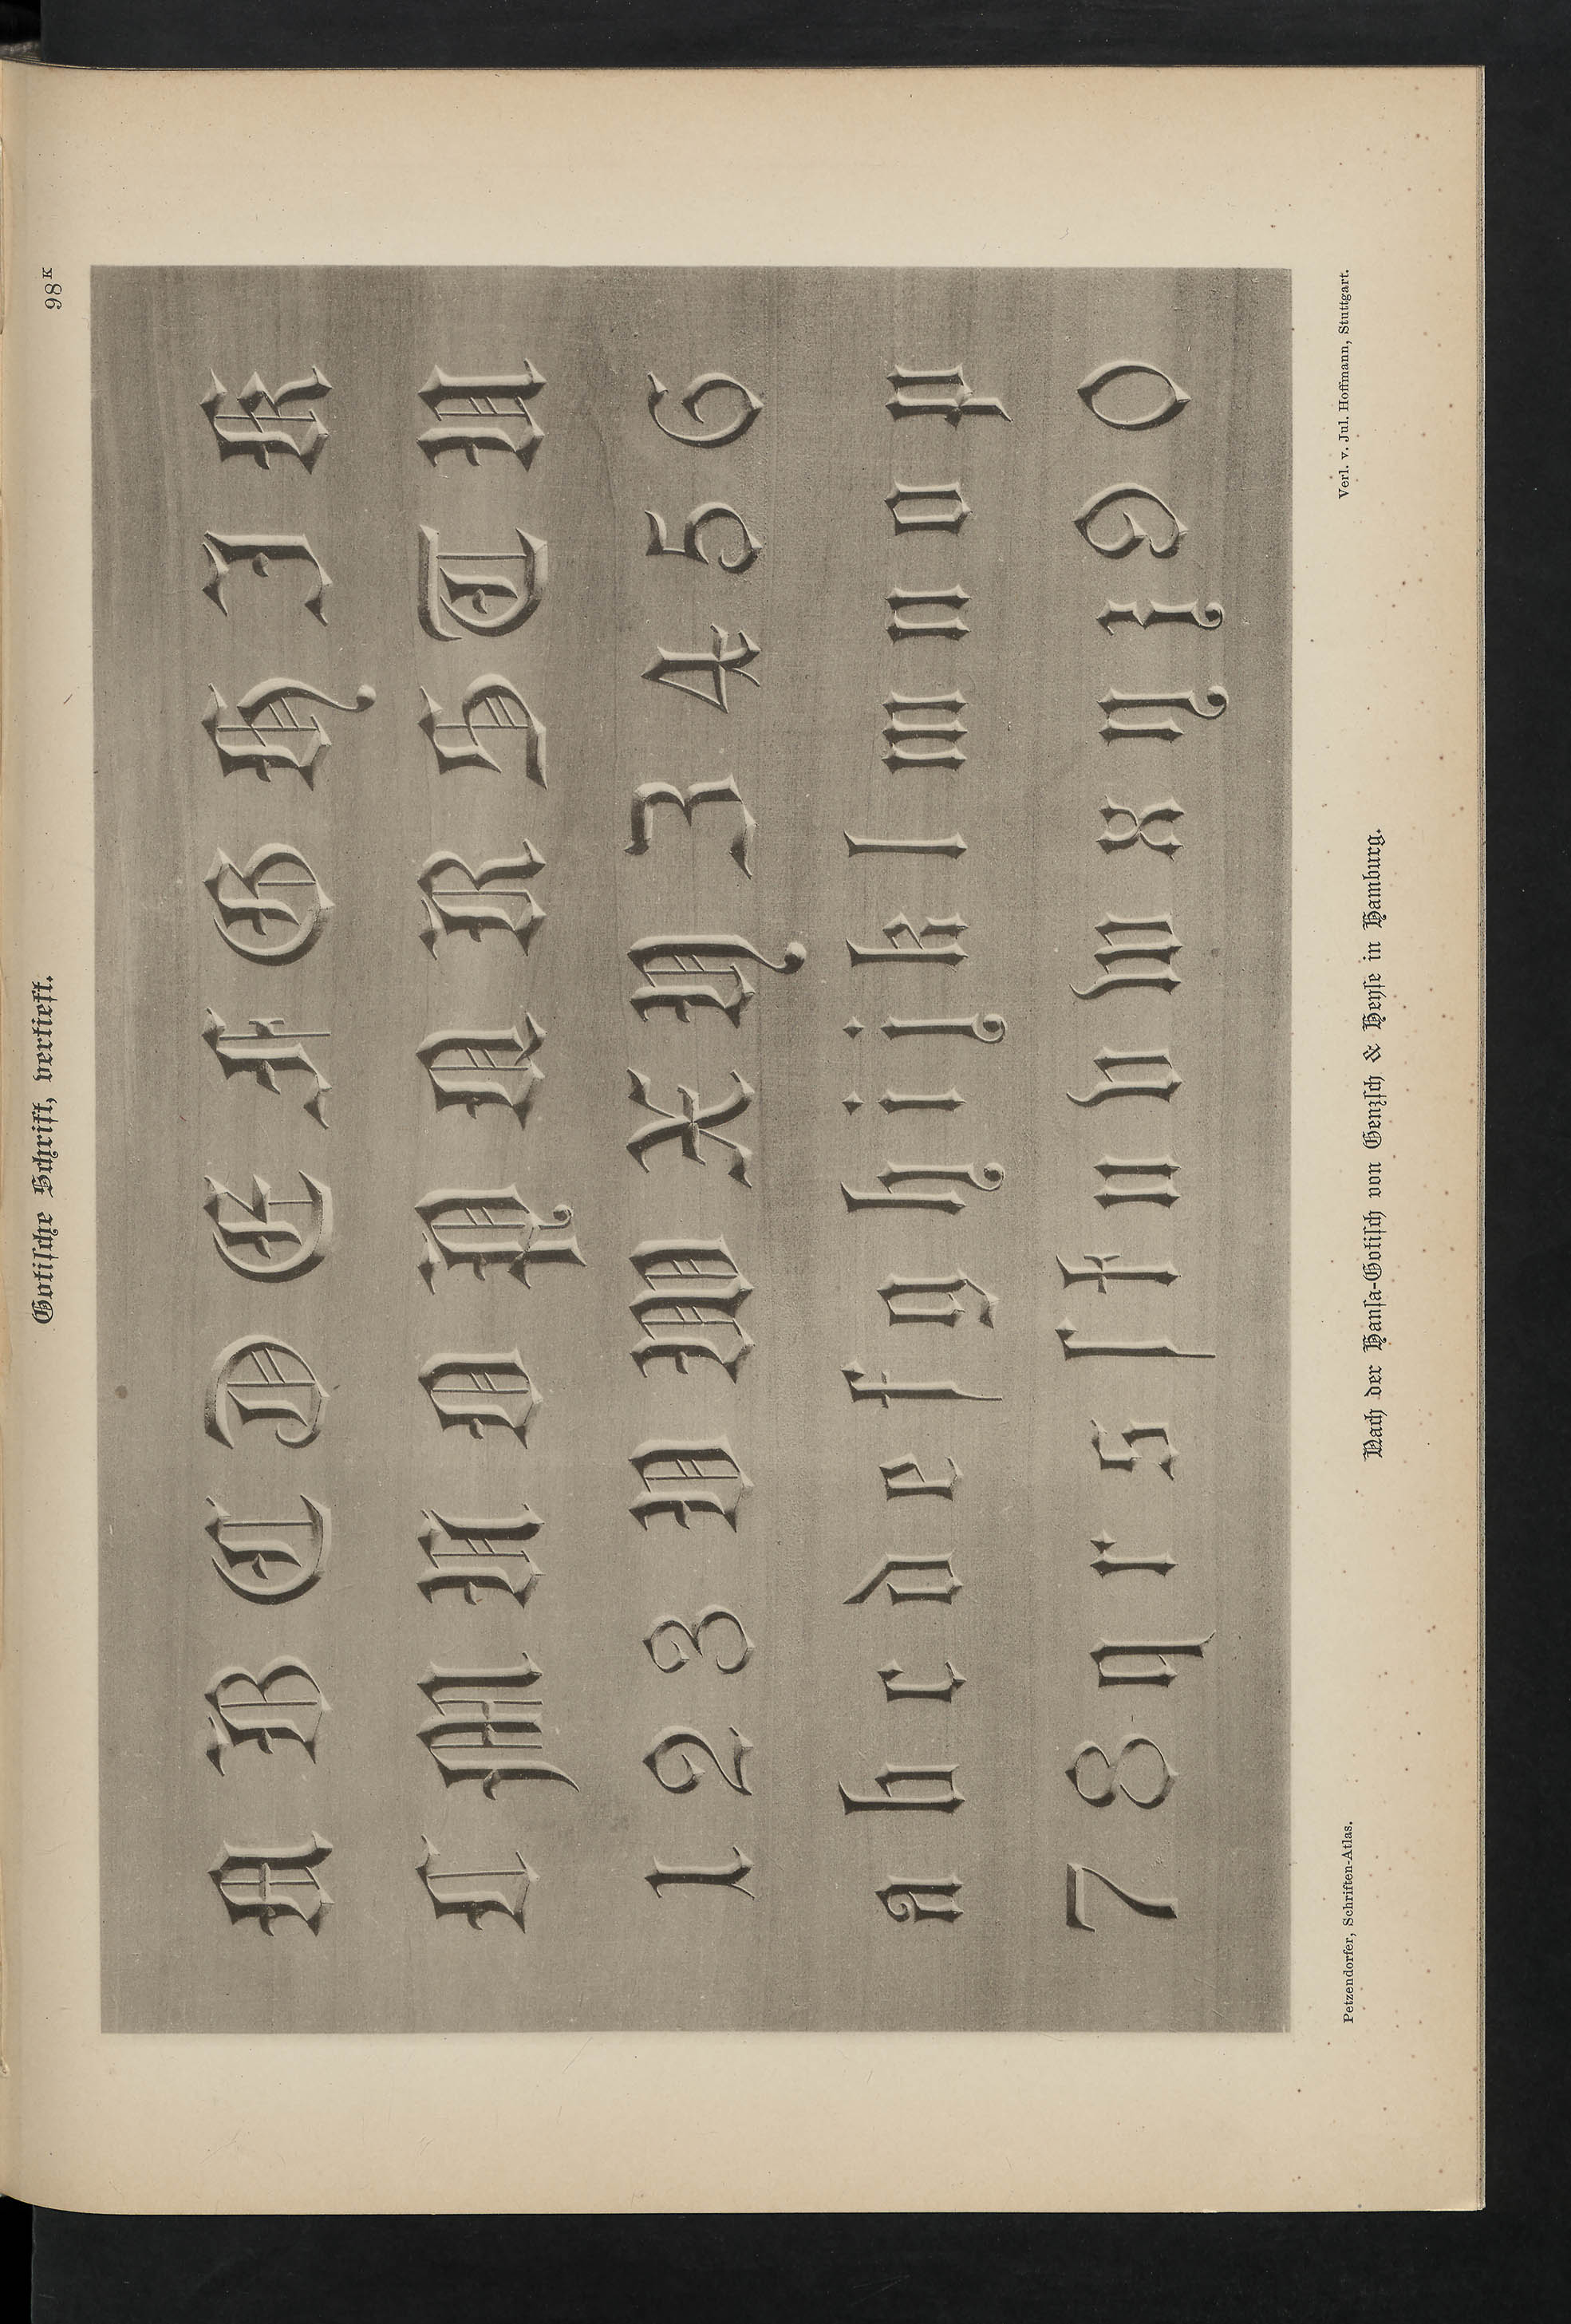 Gotiſche Schrift, vertieft.
98 K
A B C D E F G H I K
L M N O P Q R S T U
1 2 3 V W X Y Z 4 5 6
a b c d e f g h i j k l m n o p
7 8 q r s ſ t u v w x y z 9 0
Petzendorfer, Schriften-Atlas.
Verl. v. Jul. Hoffmann, Stuttgart.
Nach der Hanſa-Gotiſch von Genzſch & Heyſe in Hamburg.